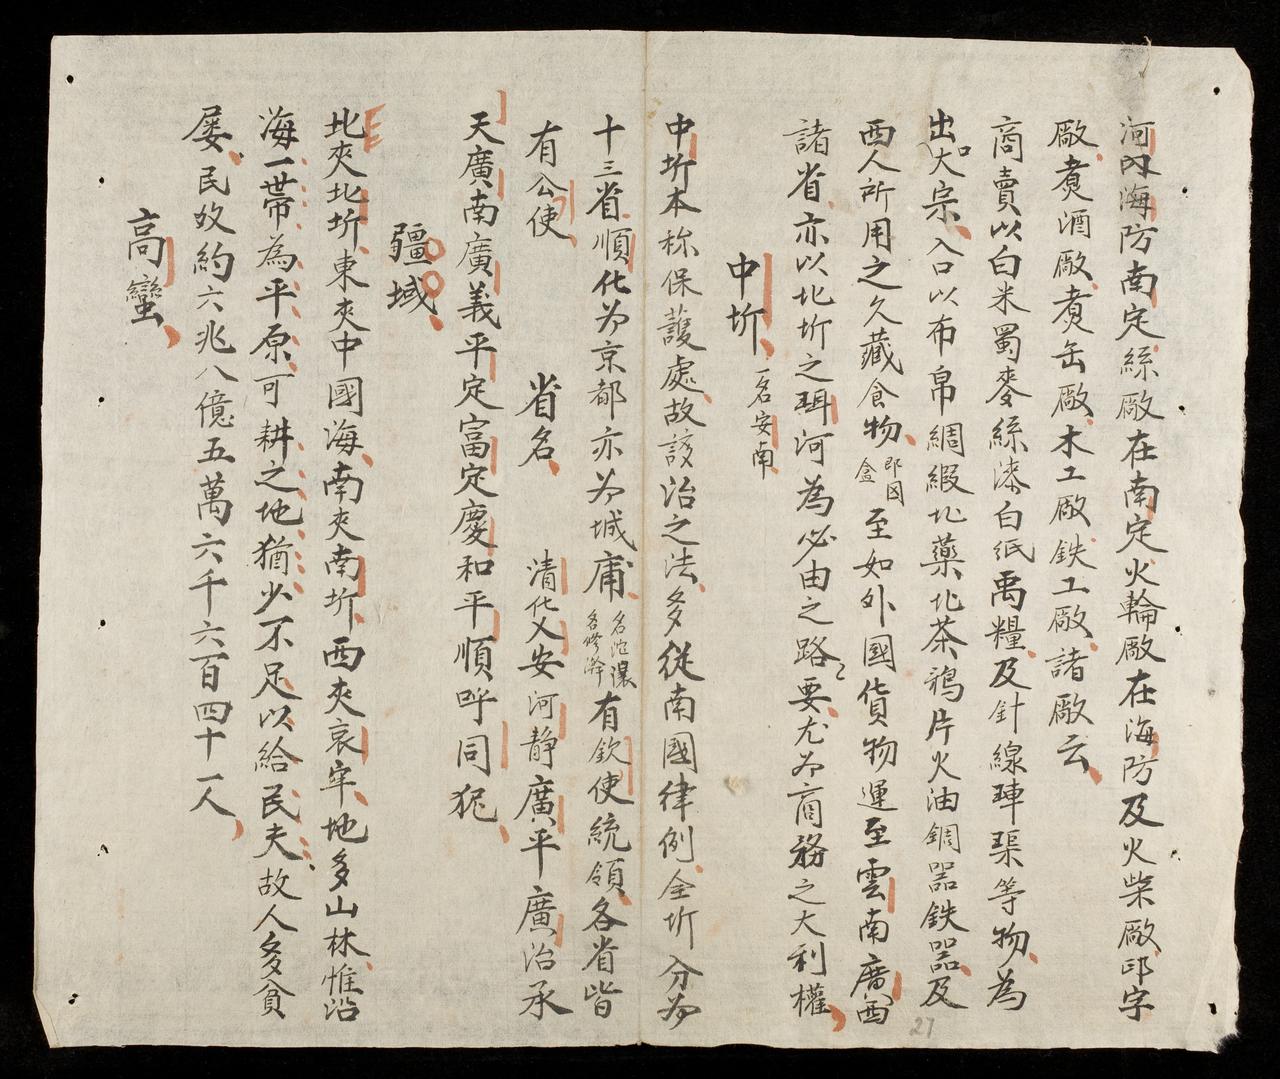 河内海防南定絲廠在南定火輪廠在海防及火柴廠印字
廠煑酒廠煑缶廠木工廠鉄工廠諸廠云
商賣以白米蜀麥絲漆白紙禹糧及針線琿渠等物為
出大宗入口以布帛綢緞北藥北茶鴉片火油銅器鉄器及
西人所用之久藏食物即國盒至如外國貨物運至雲南廣西
諸省亦以北圻之珥河為必由之路要尤为商務之大利權
中圻一名安南
中圻本称保護處故該治之法多從南國律例全圻分为
十三省順化为京都亦为城庸名沱瀼名修漨有欽使統領各省皆
有公使
省名
清化乂安河静廣平廣治承
天廣南廣義平定富定慶和平順呼同狔
疆域
北夾北圻東夾中國海南夾南圻西夾哀牢地多山林惟沿
海一带為平原可耕之地猶少不足以給民夫故人多貧
屡民奴約六兆八億五萬六千六百四十一人
高蠻
27